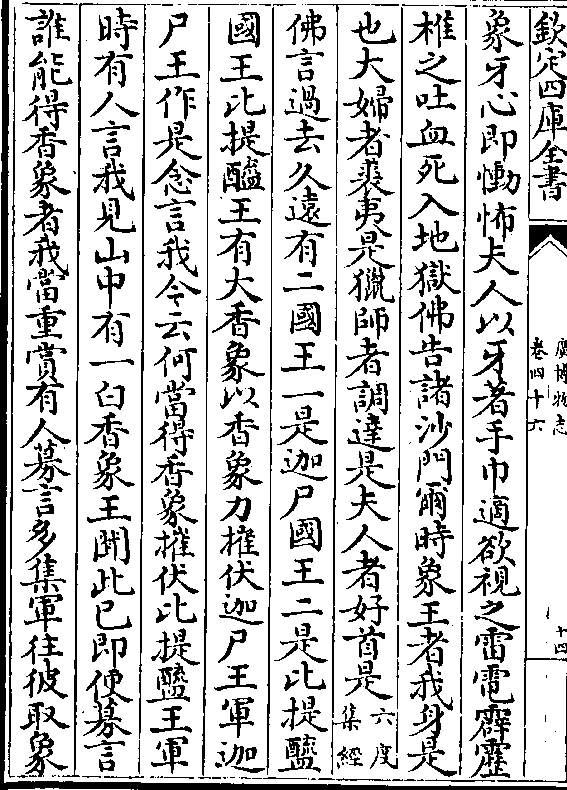 欽定四庫全書
廣博物志
卷四十六
十四
象牙心即慟怖夫人以牙著手巾適欲視之雷電霹靂
椎之吐血死入地獄佛告諸沙門爾時象王者我身是
也大婦者裘夷是獵師者調達是夫人者好首是六度集經
佛言過去久遠有二國王一是迦尸國王二是比提醯
國王比提醯王有大香象以香象力摧伏迦尸王軍迦
尸王作是念言我今云何當得香象摧伏比提醯王軍
時有人言我見山中有一白香象王聞此已即便募言
誰能得香象者我當重賞有人募言多集軍往彼取象